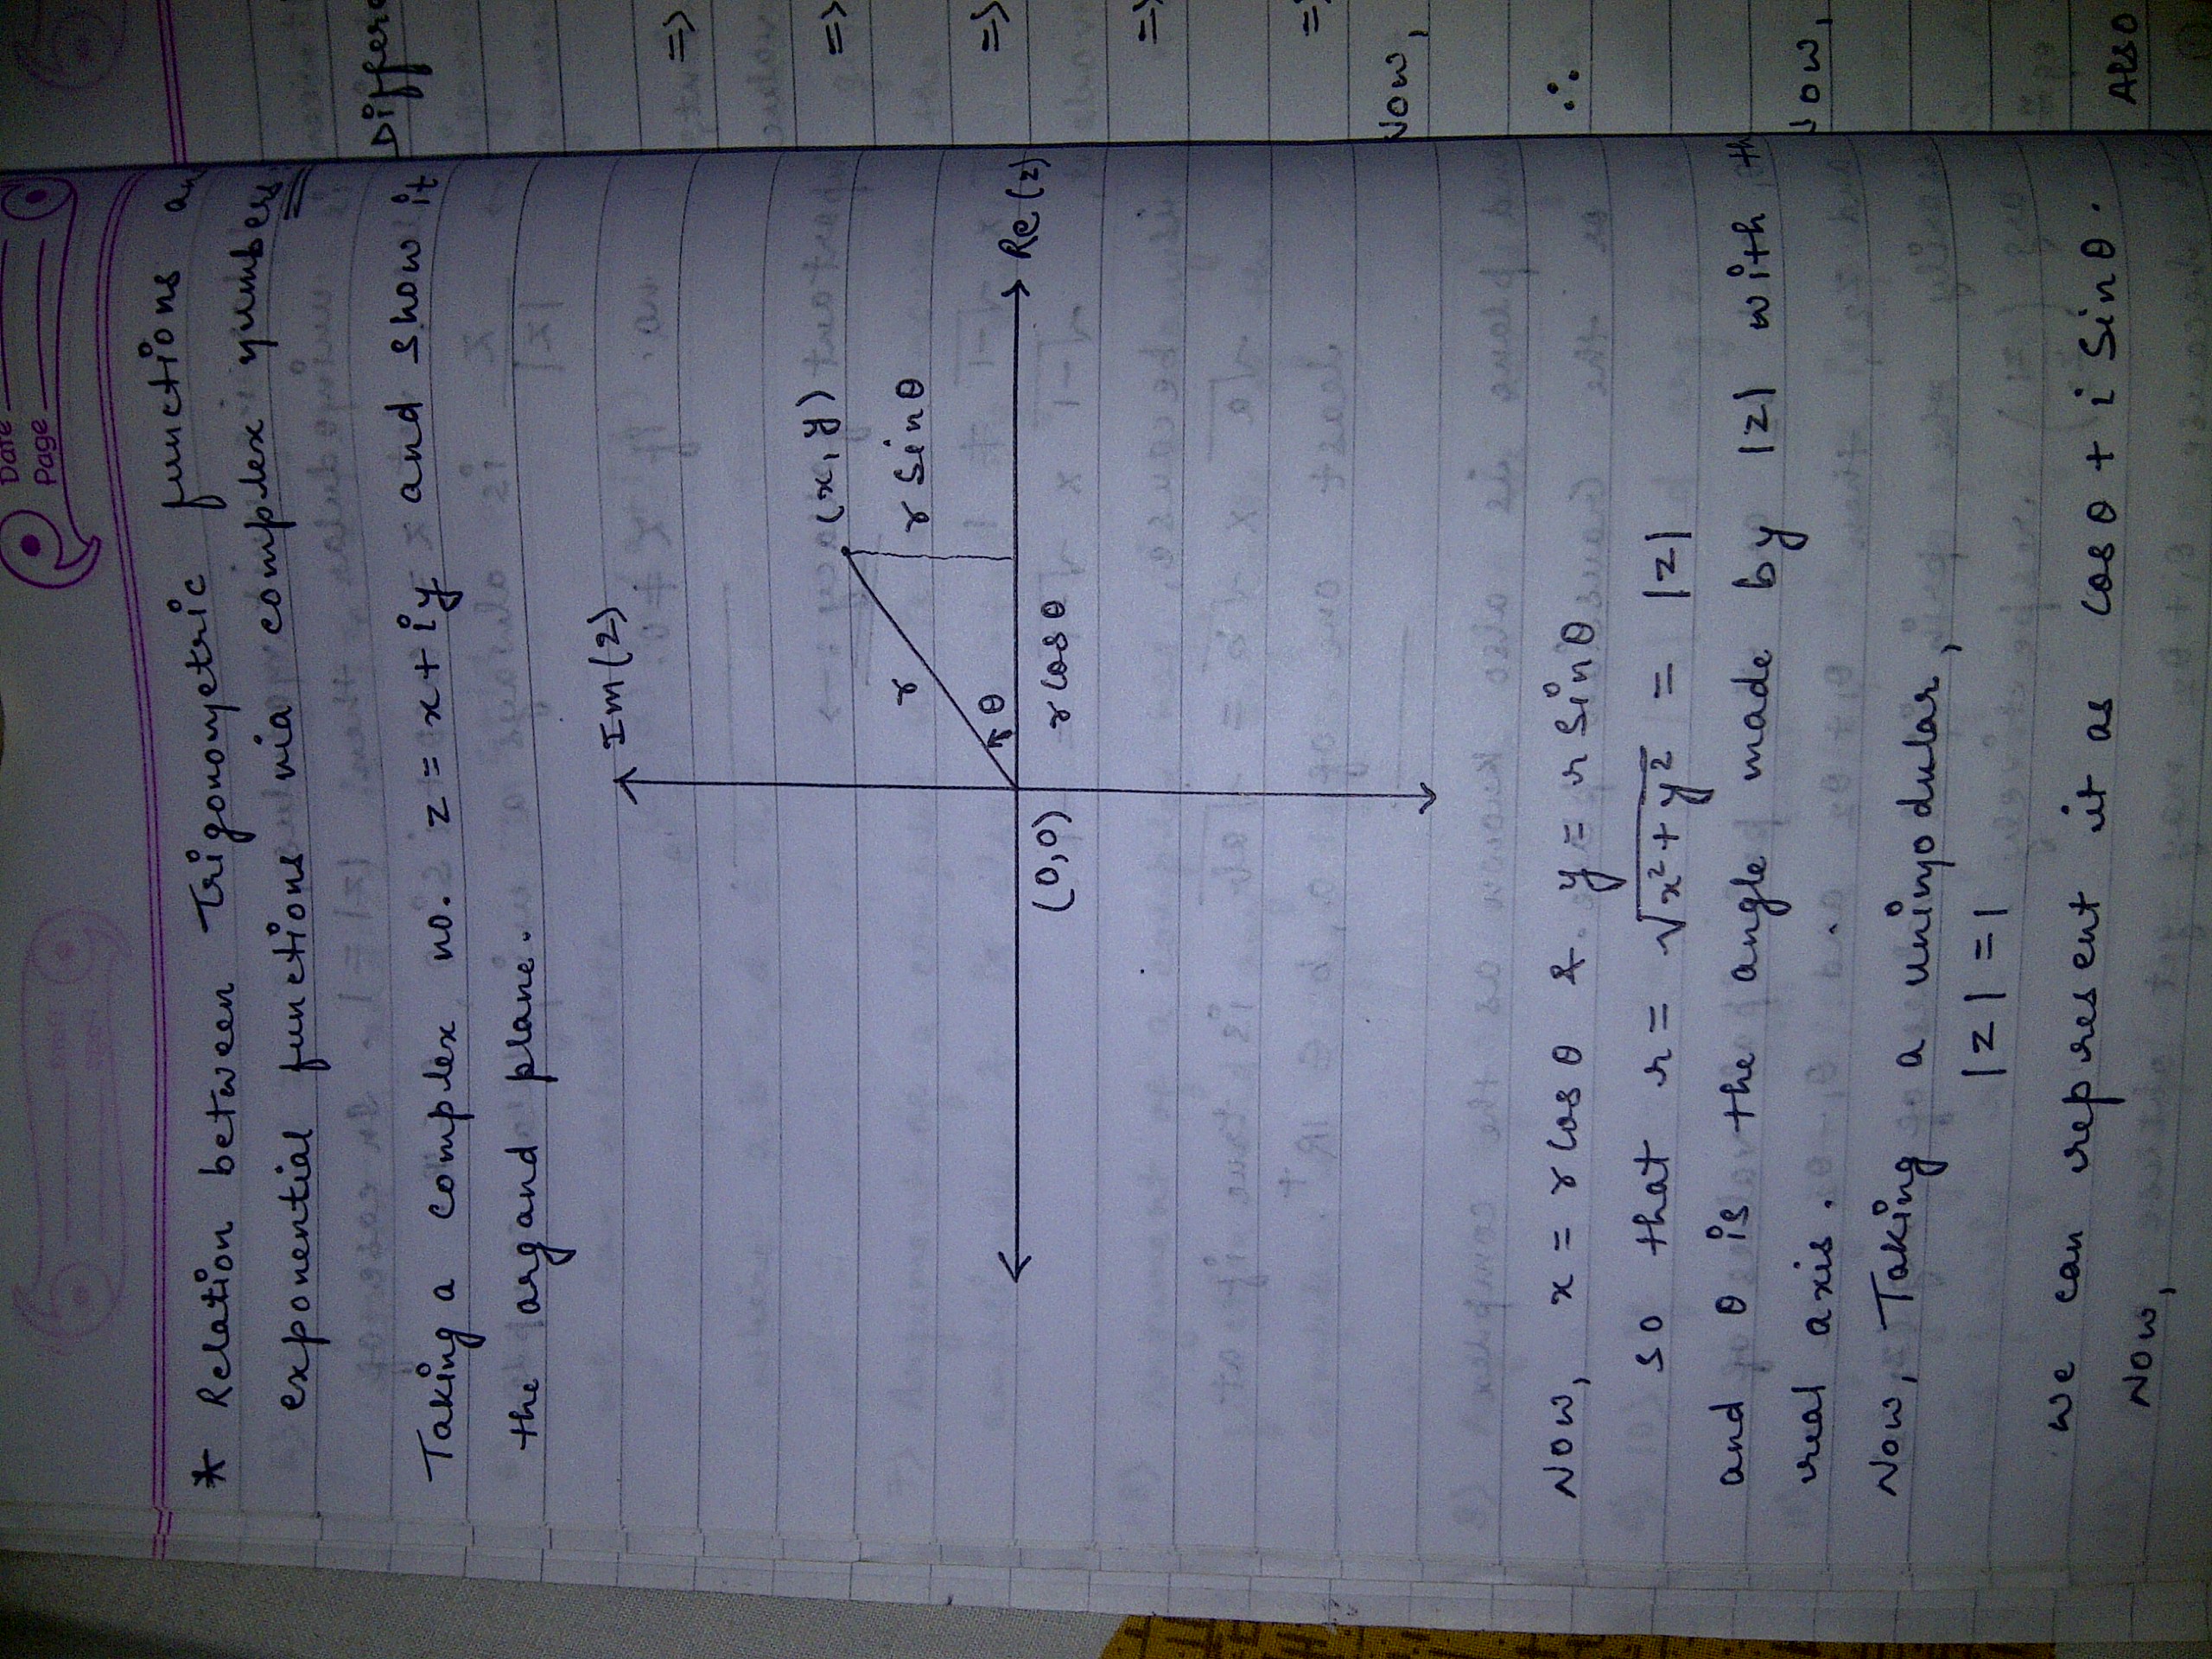 Date
Page
* Relation between Trigonometric functions an
exponential functions via complex numbers
Taking a complex no. z = x + iy and show it
the argand plane.
Im(z)
(x, y)
r
r sinθ
θ
Re(z)
(0,0)
r cosθ
Now, x = r cosθ & y = r sinθ
so that r = √x²+y² = |z|
and θ is the angle made by |z| with th
real axis.
Now, Taking a unimodular,
|z| = 1
we can represent it as cosθ + i sinθ.
Now,
Differe
=>
=>
=>
=>
=>
Now,
∴
Now,
Also